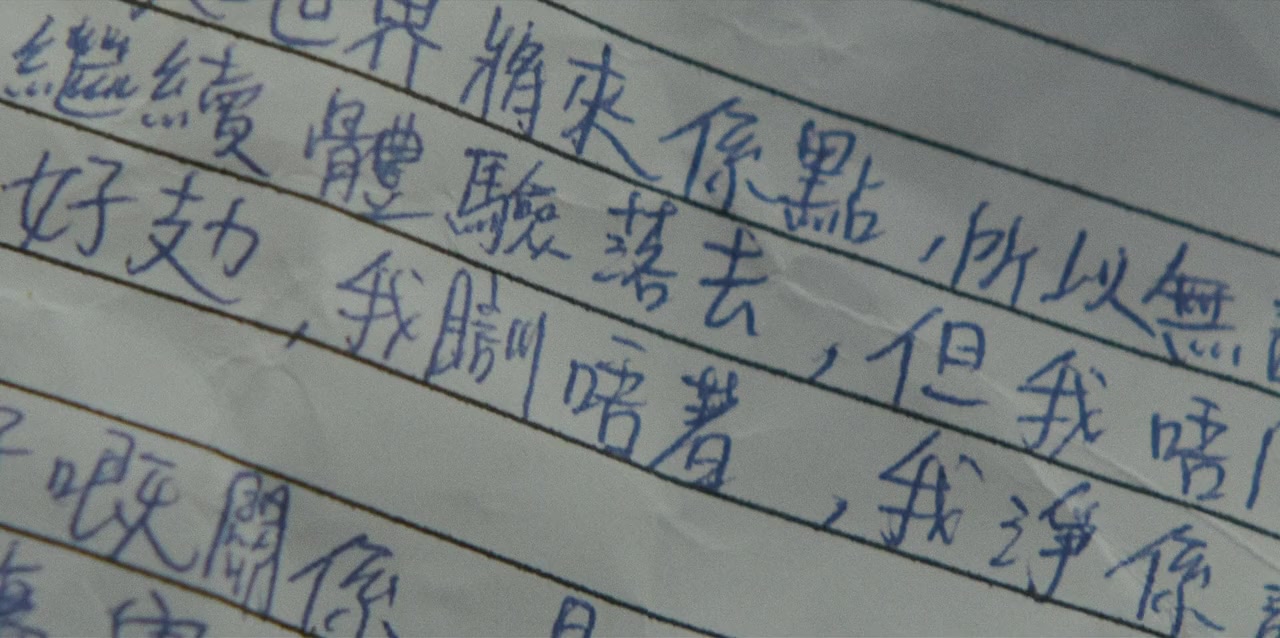 世界將來係點,所以無
繼續體驗落去,但我唔
好攰,我瞓唔著,我淨係
嘅關係